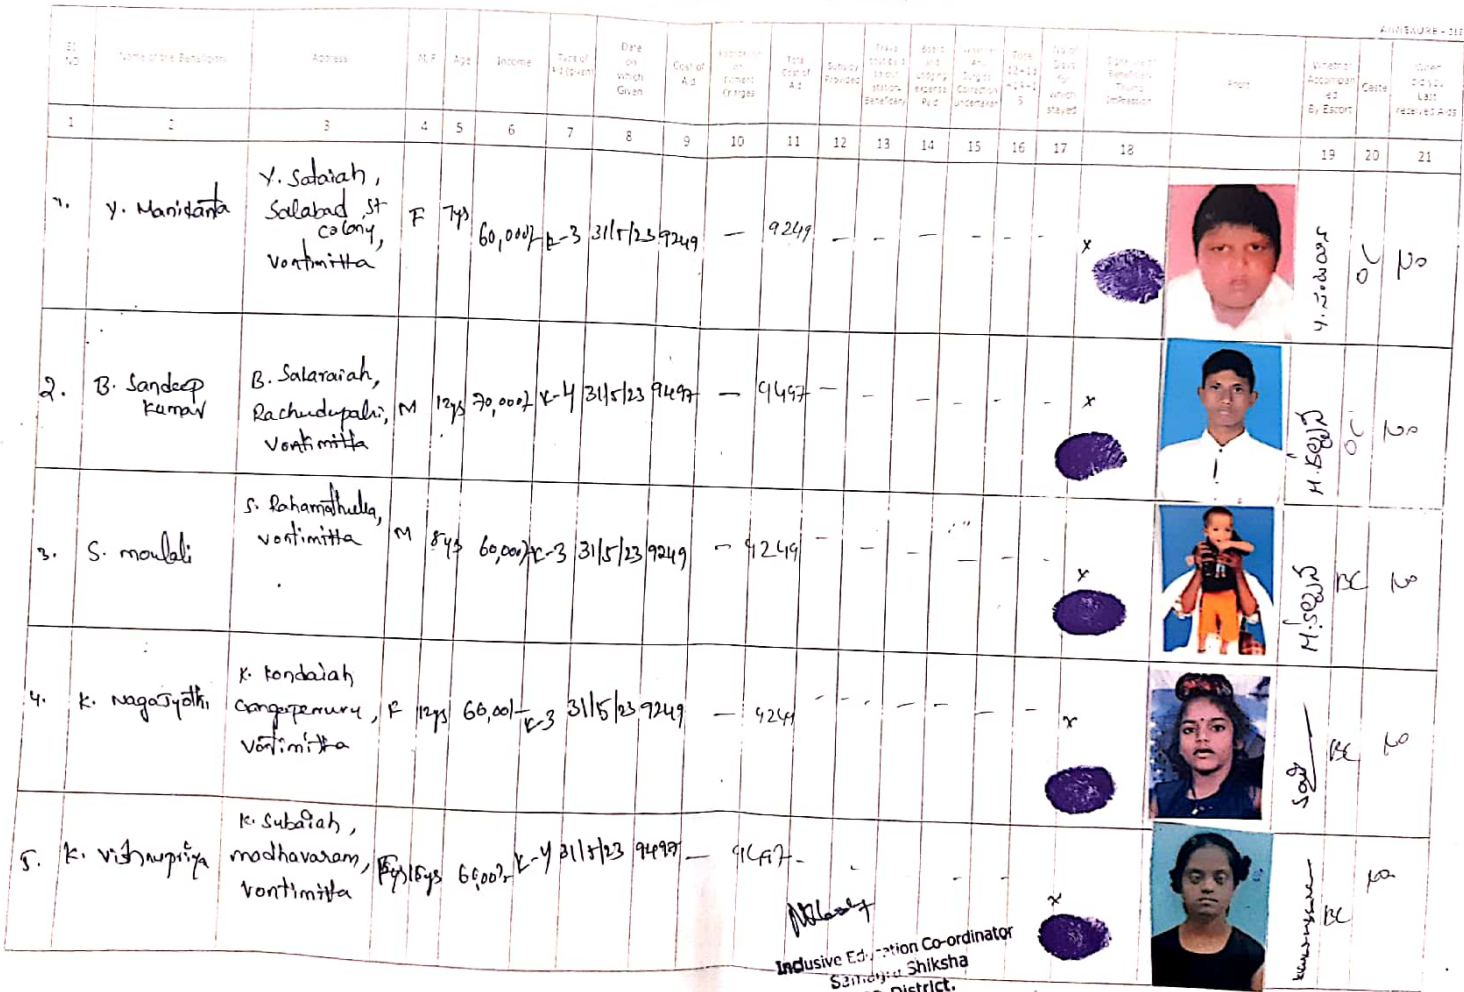 ANNEXURE - III
Sl. NO
Name of the Beneficiary
Address
M/F
Age
Income
Type of Aid (given)
Date on Which Given
Cost of Aid
Total Cost of Aid
Subsidy Provided
No of Days for which stayed
Photo
Whether Accompanied By Escort
Caste
1 2 3 4 5 6 7 8 9 10 11 12 13 14 15 16 17 18 19 20 21
1. Y. Manikanta
Y. Sataiah,
Salabad, st
colony,
Vontimitta
F 7ys 60,000/- K-3 31/5/23 9249 — 9249 - - - - - - x
OC No
2. B. Sandeep
Kumar
B. Salaraiah,
Rachudupalli,
Vontimitta
M 12ys 70,000/- K-4 31/5/23 9497 — 9497 - - - - - - x
OC No
3. S. moulali
S. Rahamathulla,
vontimitta
M 8ys 60,000/- K-3 31/5/23 9249 - 9249 - - - - - - x
BC No
4. K. NagaJyothi
K. Kondaiah
Gangaperuru,
vontimitta
F 12ys 60,00/- K-3 31/5/23 9249 — 9249 - - - - - - x
BC No
5. K. Vishnupriya
K. Subaiah,
madhavaram,
Vontimitta
18ys 60,00/- K-4 31/5/23 9497 — 9497 - x
BC No
Inclusive Education Co-ordinator
Samagra Shiksha
District.